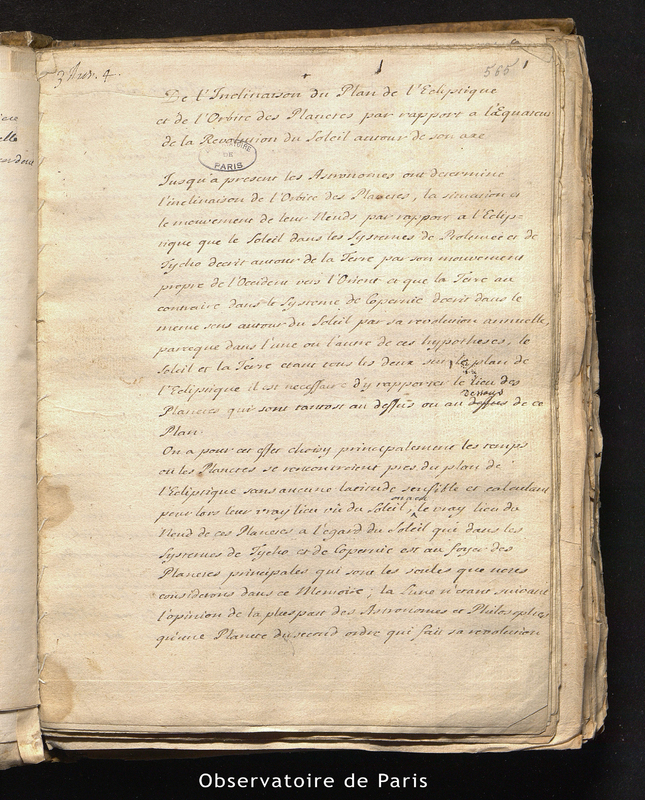 565
De l'Inclinaison du Plan de l'Ecliptique
et de l'Orbite des Planetes par rapport a l'Equateur
de la Revolution du Soleil autour de son axe
OBSERVATOIRE DE PARIS
Jusqu'a present les Astronomes ont determiné
l'inclinaison de l'Orbite des Planetes, la situation et
le mouvement de leur Neuds par rapport a l'Eclip-
tique que le Soleil dans les Systemes de Ptolemée et de
Tycho decrit autour de la Terre par son mouvement
propre de l'Occident vers l'Orient et que la Terre au
contraire dans le Systeme de Copernic decrit dans le
meme sens autour du Soleil par sa revolution annuelle,
parceque dans l'une ou l'autre de ces hypotheses, le
Soleil et la Terre etant tous les deux sur le plan de
l'Ecliptique il est necessaire d'y rapporter le lieu des
Planetes qui sont tantost au dessus ou au dessous de ce
Plan.
On a pour cet effet choisy principalement les temps
ou les Planetes se rencontroient pres du plan de
l'Ecliptique sans aucune latitude sensible et calculant
pour lors leur vray lieu vû du Soleil, on a eu le vray lieu du
Neud de ces Planetes a l'egard du Soleil qui dans les
Systemes de Tycho et de Copernic est au foyer des
Planetes principales qui sont les seules que nous
considerons dans ce Memoire; la Lune n'etant suivant
l'opinion de la pluspart des Astronomes et Philosophes
qu'une Planete du second ordre qui fait sa revolution
Observatoire de Paris